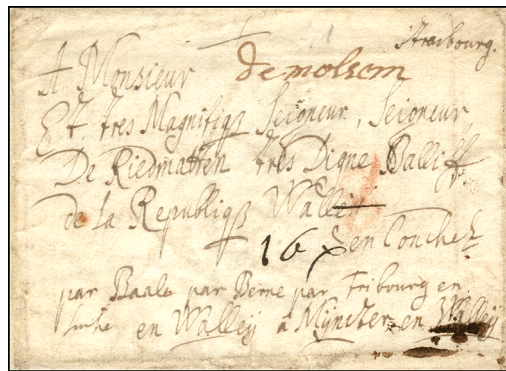 Strasbourg.
A Monsieur
de molsem
Et tres Magnifiq Seigneur, Seigneur
De Riedmatten tres Digne Balliff
de la Republiq Walleii
16 en Conches
par Baale par Berne par Fribourg en
en Walleÿ a Mÿnster en Walleÿ